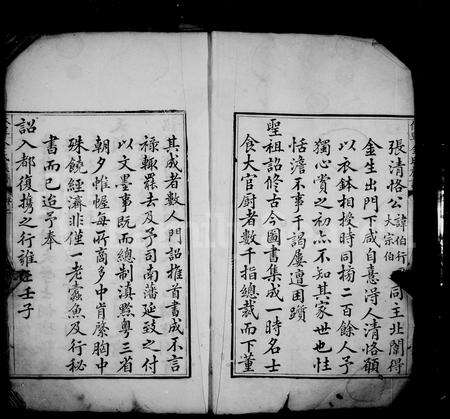 張清恪公諱伯行大宗伯同王北闈得
金生出門下咸自意得人清恪顧
以衣鉢相授時同擄二百餘人予
獨心賞之初亦不知其家世也性
恬澹不事干謁屢遭困躓
聖祖詔修古今圖書集成一時名士
食大官廚者數千指總裁而下董
其成者數人門詔推首書成不言
祿輒罷去及予司南藩延致之付
以文墨事既而總制滇黔粵三省
朝夕帷幄每所商多中肯綮胸中
殊饒經濟非僅一老蠹魚及行秘
書而已迨予奉
詔入都復攜之行雖在壬子